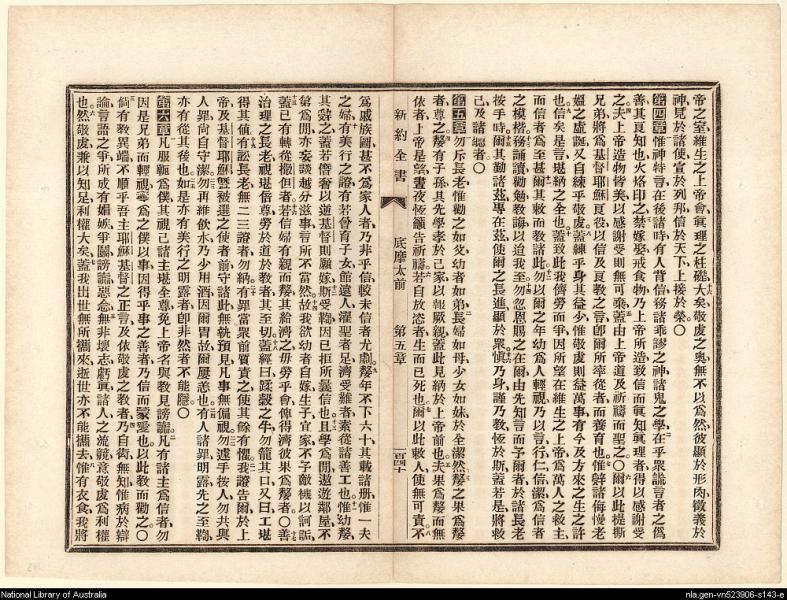 帝之室維生之上帝會眞理之柱礎大矣敬虔之奧無不以爲然彼顯於形肉徵義於
神見於諸使宣於列邦信於天下上接於榮〇
第四章惟神特言在後諸時有人背信務諸乖謬之神諸鬼之學在乎衆謊言者之僞
善其良知也火烙印之禁嫁娶戒食物乃上帝所造致信而眞知眞理者得以感謝受
之夫上帝造物皆美以感謝受則無可棄蓋由上帝道及祈禱而聖之〇爾以此提撕
兄弟將爲基督耶穌良役以信及良敎之言卽爾所率從者而養育也惟僻諸侮慢老
嫗之虛誕又自練乎敬虔蓋練乎身其益少惟敬虔則益萬事有乎今及方來之生之許
也信矣是言堪納之全也蓋致此我儕勞而爭因所望在維生之上帝爲萬人之救主
而信者爲至甚爾其敕而敎諸此勿以爾之年幼爲人輕視乃以言行仁信潔爲信者
之模楷務誦讀勸勉敎誨以迨我至勿忽恩賜之在爾由先知言而予爾者於諸長老
按手時爾其勤諸茲專在茲使爾之長進顯於衆愼乃身謹乃敎恆於斯蓋若是將救
己及諸聽者〇
第五章勿斥長老惟勸之如父幼者如弟長婦如母少女如妹於全潔然嫠之果爲嫠
者尊之嫠有子孫其先學孝於己家以報厥親蓋此見納於上帝前也夫果爲嫠而無
依者上帝是望晝夜恆籲告祈禱若自放恣者生而已死也爾以此敕人使無可責不
新約全書
底摩太前 第五章
一百四十
爲戚族圖甚不爲家人者乃非乎信較未信者尤劇嫠年不下六十其載諸册惟一夫
之婦有美行之證有若曾育子女館遠人濯聖者足濟受難者素從諸善工也惟幼嫠
其辭之蓋若僭奢以逆基督則願嫁斯受讁因已拒所曩信也且學爲閒遨遊鄰屋不
第爲閒亦妄談越分滋事言所不當然故我欲幼者自嫁生子宜家不予敵機以訶詬
蓋已有轉從撒但者若信婦有親而嫠其給濟之毋勞乎會俾得濟彼果爲嫠者〇善
治理之長老視堪倍尊勞於道於敎者其至切蓋經曰蹂穀之牛勿籠其口又曰工堪
得其値有訟長老無二三證者勿納有罪當衆前質責之使其餘有懼我證吿爾於上
帝及基督耶穌曁被選之使者前守諸此無執預見凡事無偏視勿遽手按人勿共與
人罪尙自守潔勿再維飲水乃少用酒因爾胃故爾屢恙也有人諸罪明露先之至鞫
亦有從其後也如是亦有美行之明露者卽非然者不能隱〇
第六章凡服軛爲僕其視己諸主堪全尊免上帝名與敎見謗讟凡有諸主爲信者勿
因是兄弟而輕視寧爲之僕以事因得乎事之善者乃信而蒙愛也以此敎而勸之〇
倘有敎異端不順乎吾主耶穌基督之正言及依敬虔之敎者乃自衒無知惟病於辯
論言語之爭所成有媢嫉爭鬭謗讟惡念無非壞志虧眞諸人之流競意敬虔爲利權
也然敬虔兼以知足利權大矣蓋我出世無所攜來逝世亦不能攜去惟有衣食我將
National Library of Australia
nla.gen-vn523906-s143-e